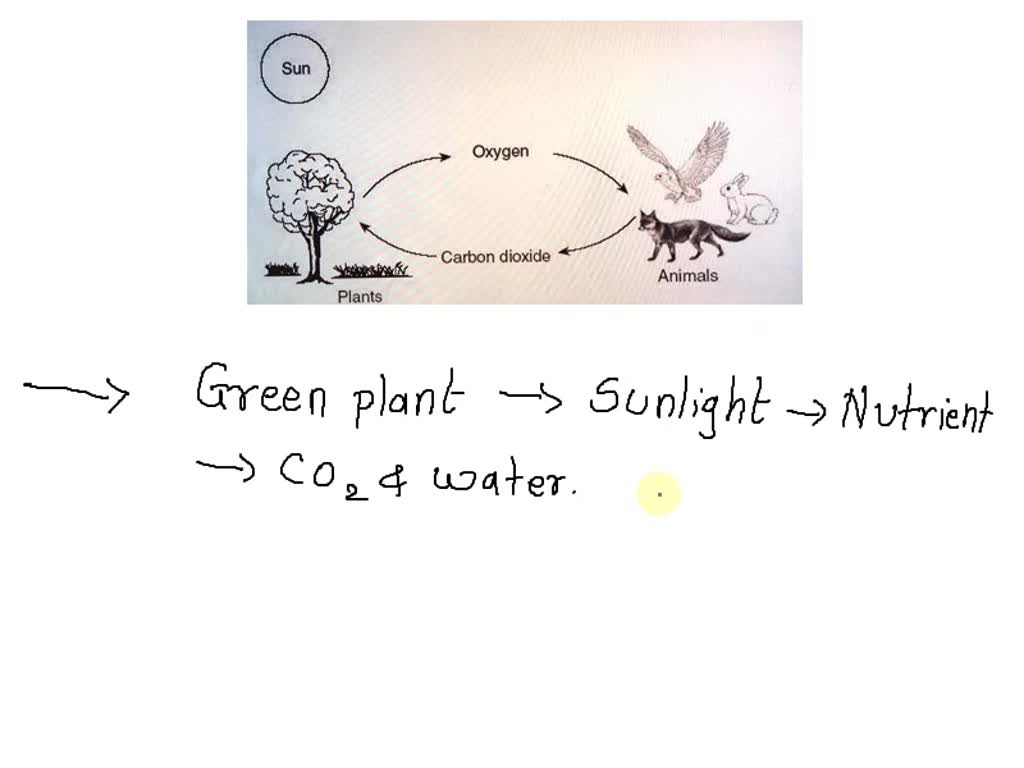 Sun
Oxygen
Carbon dioxide
Animals
Plants
→ Green plant → Sunlight → Nutrient
→ CO₂ & water.